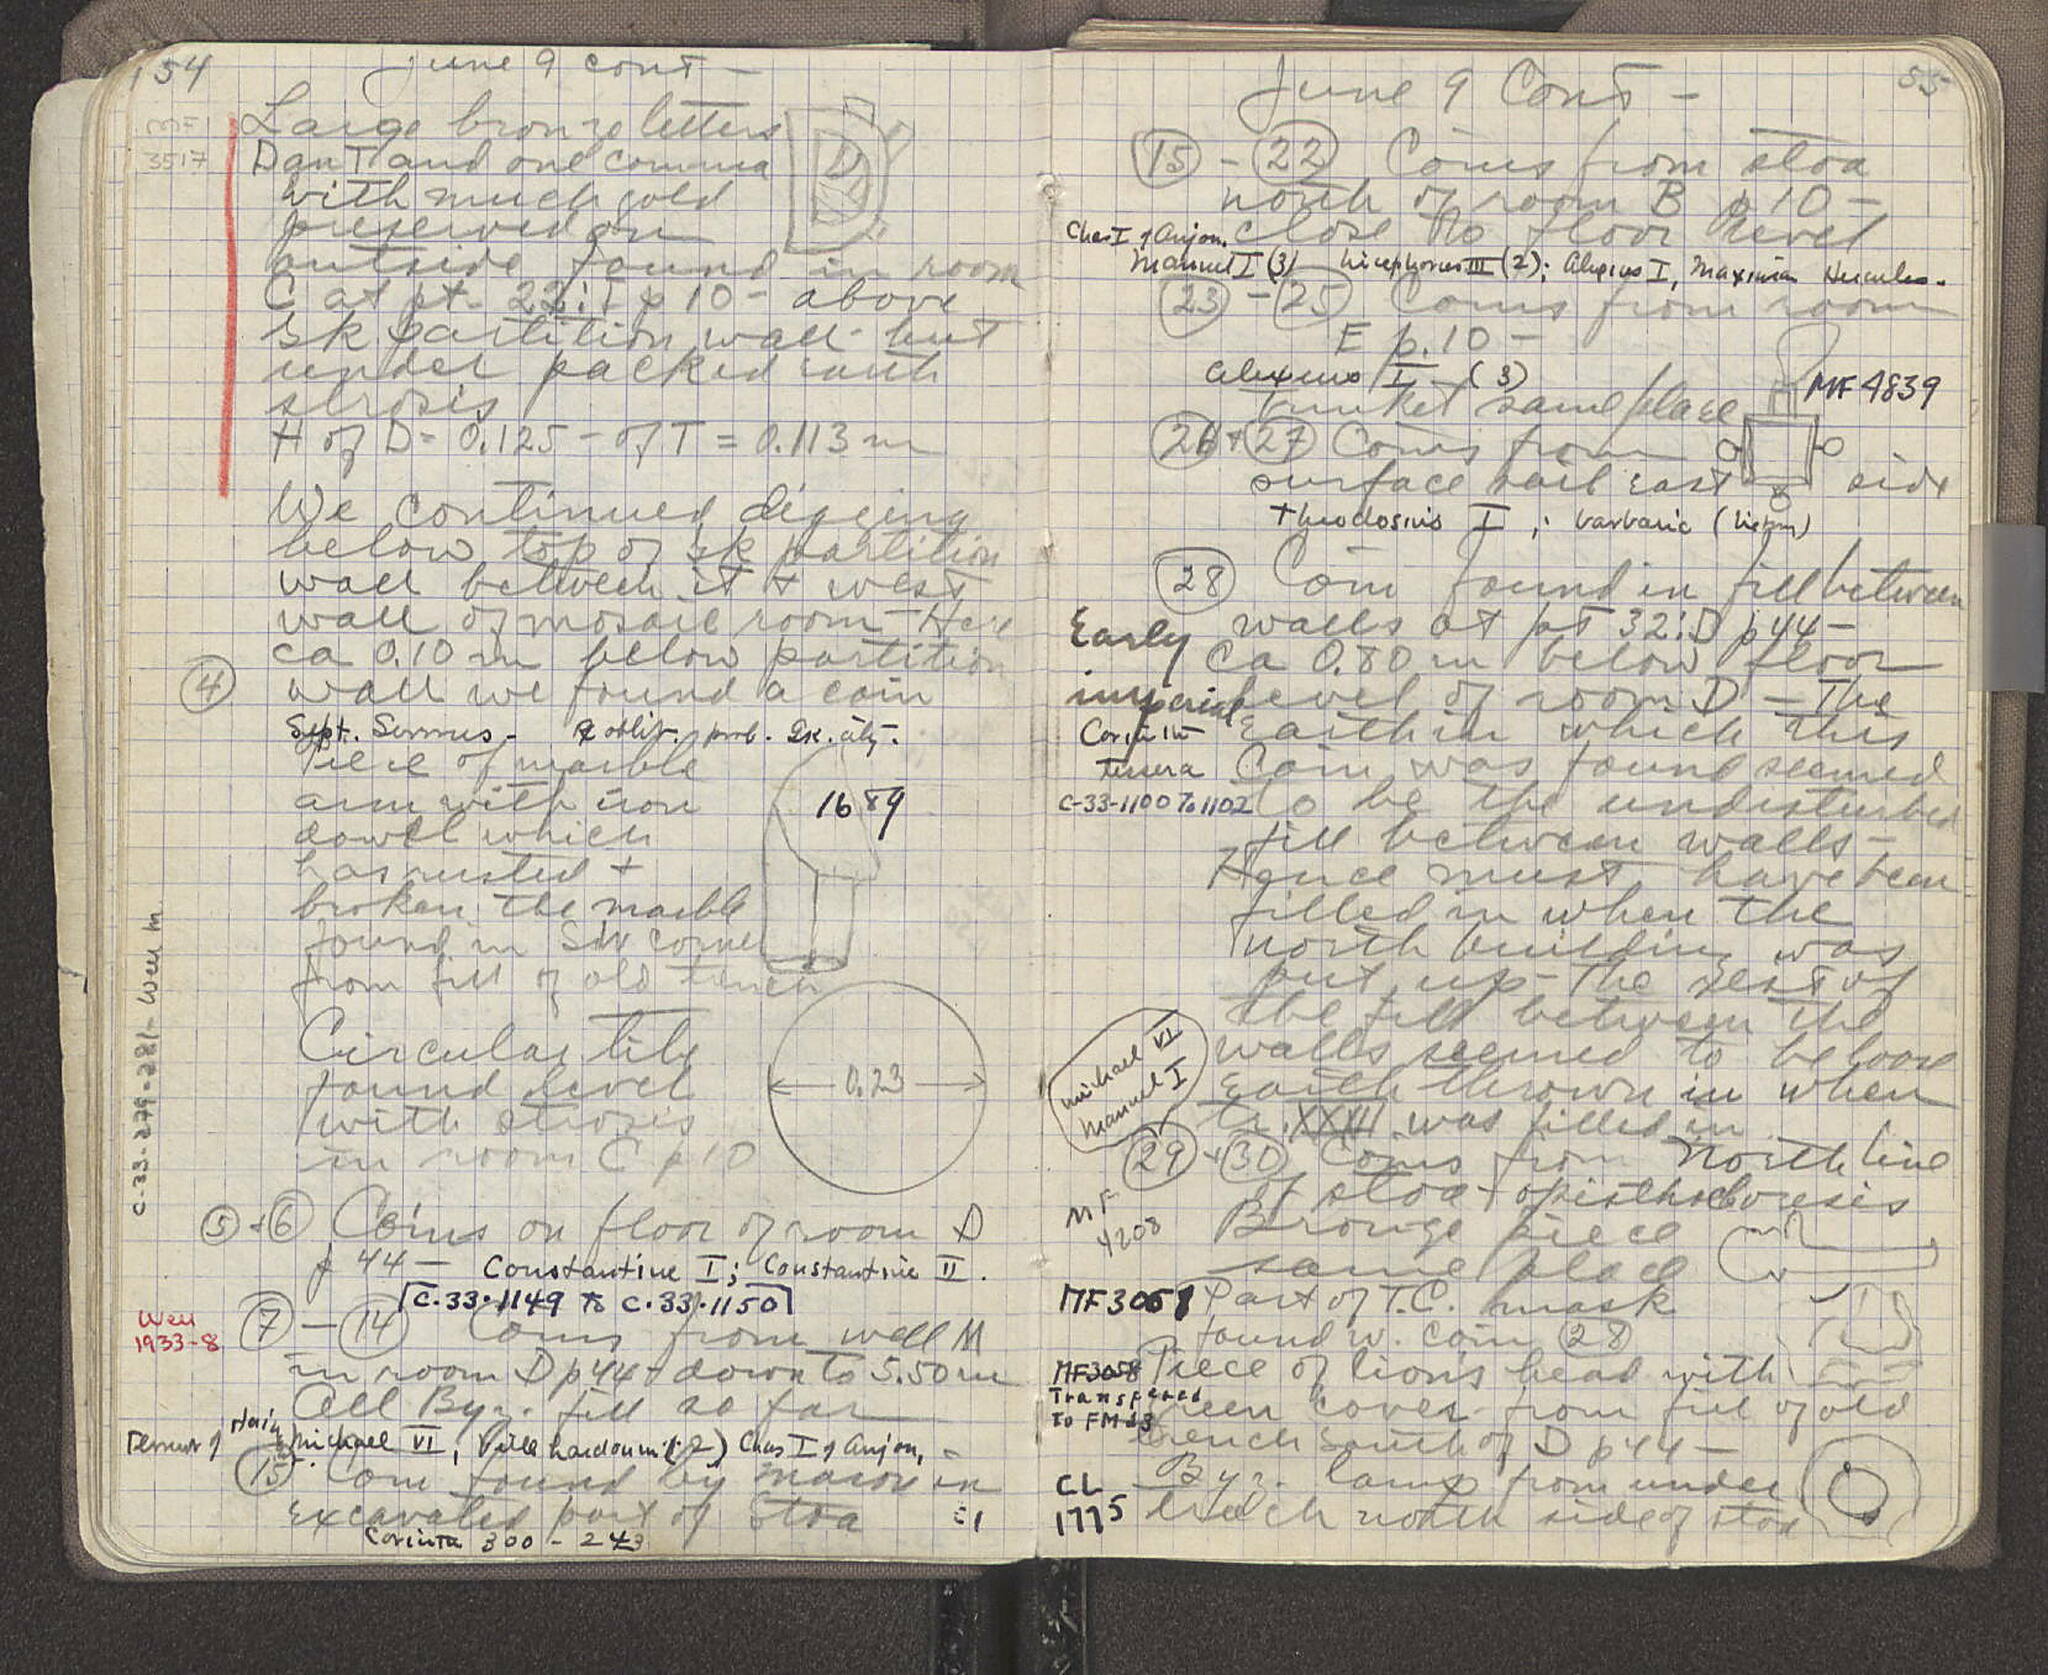 54
June 9 cont -
MF
3517
Large bronze letters
D and T and one comma
with much gold
preserved on
outside found in room
C at pt. 22:T p 10 - above
Sk partition wall but
under packed earth
strosis
H of D = 0.125 - of T = 0.113 m
We continued digging
below top of Sk partition
wall between it + west
wall of mosaic room - Here
ca 0.10 m below partition
4 wall we found a coin
Sept. Severus - oblit. prob. Gk. city.
Piece of marble
arm with iron
dowel which
has rusted +
broken the marble
found in SW corner
from fill of old trench
1689
Circular tile
found level
with strosis
in room C p 10
0.23
C-33-279-281 - Well M
5 + 6 Coins on floor of room D
p 44 - Constantine I; Constantine II.
C.33.1149 to C.33.1150
Well
1933-8
7 - 14 Coins from well M
in room D p 44 - down to 5.50 m
All Byz. fill so far
Michael VI, Villehardouin (2) Chas I of Anjou,
15 Coin found by mason in
excavated part of Stoa
Corinth 300 - 243
55
June 9 Cont -
15 - 22 Coins from stoa
north of room B p 10 -
close to floor level
Chas I of Anjou.
Manuel I (3) Nicephorus III (2); Alexius I, Maximian Hercules.
23 - 25 Coins from room
E p. 10 -
Alexius I (3)
Trinket same place
MF 4839
26 + 27 Coins from
surface soil east side
Theodosius I; barbaric (Victory)
28 Coin found in fill between
walls at pt 32:D p 44 -
ca 0.80 m below floor
level of room D - The
Early
imperial
Corinth
tessera
C-33-1100 to 1102
Earth in which this
Coin was found seemed
to be the undisturbed
fill between walls -
Hence must have been
filled in when the
North building was
put up - the rest of
the fill between the
walls seemed to be loose
Earth thrown in when
tr. XXIII was filled in
Michael VI
Manuel I
29 + 30 Coins from North line
of stoa + opisthodomesis
MF
4208
Bronze piece
same place
MF 3051 Part of T.C. mask
found w. coin 28
MF3058
Transfered
to FM 13
Piece of lion's head with
green cover from fill of old
trench south of D p 44 -
CL
1775
Byz. lamp from under
trench north side of stoa